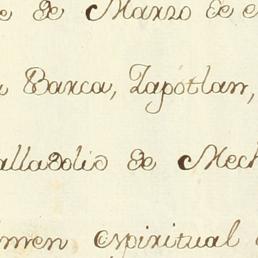 e de Marzo de e
a Barca, Zapótlan,
alladolid de Mech
imen espiritual